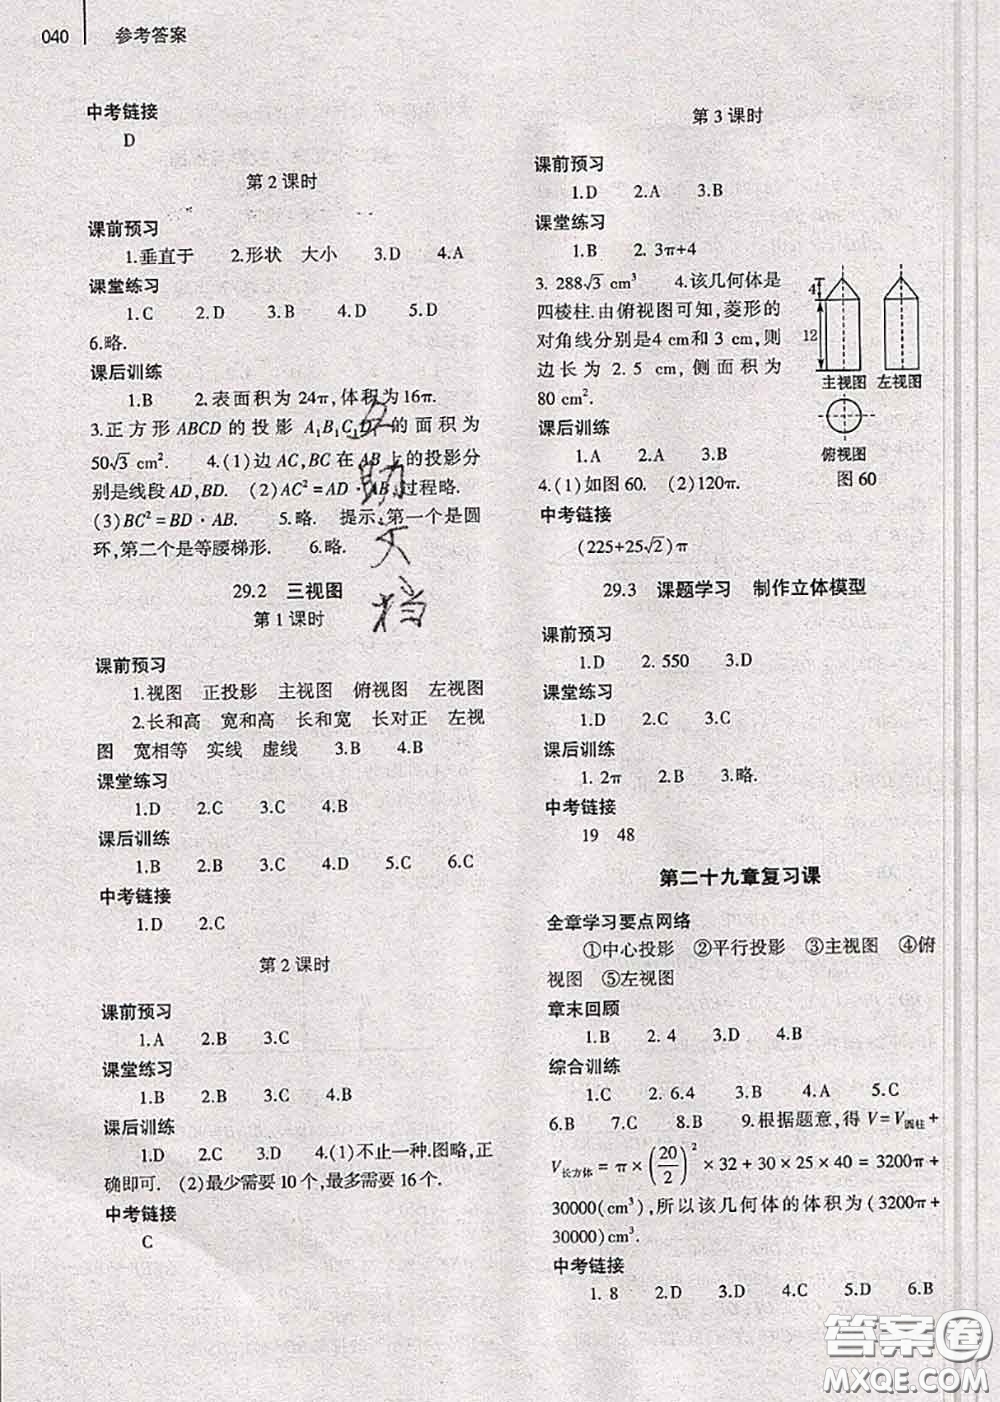 040 参考答案
中考链接
D
第 2 课时
课前预习
1.垂直于 2.形状 大小 3.D 4.A
课堂练习
1.C 2.D 3.B 4.D 5.D
6.略.
课后训练
1.B 2.表面积为 24π,体积为16π.
3.正方形 ABCD 的投影 A₁B₁C₁D₁ 的面积为
50√3 cm². 4.(1)边 AC,BC 在 AB 上的投影分
别是线段 AD,BD. (2)AC²=AD·AB,过程略.
(3)BC²=BD·AB. 5.略. 提示:第一个是圆
环,第二个是等腰梯形. 6.略.
29.2 三视图
第 1 课时
课前预习
1.视图 正投影 主视图 俯视图 左视图
2.长和高 宽和高 长和宽 长对正 左视
图 宽相等 实线 虚线 3.B 4.B
课堂练习
1.D 2.C 3.C 4.B
课后训练
1.B 2.B 3.C 4.D 5.C 6.C
中考链接
1.D 2.C
第 2 课时
课前预习
1.A 2.B 3.C
课堂练习
1.D 2.B 3.C 4.B
课后训练
1.D 2.C 3.D 4.(1)不止一种.图略,正
确即可. (2)最少需要 10 个,最多需要 16 个.
中考链接
C
第 3 课时
课前预习
1.D 2.A 3.B
课堂练习
1.B 2. 3π+4
3. 288√3 cm³ 4.该几何体是
四棱柱.由俯视图可知,菱形的
对角线分别是4 cm和 3 cm,则
边长为 2.5 cm,侧面积为
80 cm².
4
12
主视图 左视图
俯视图
图 60
课后训练
1.A 2.A 3.B
4.(1)如图 60. (2)120π.
中考链接
(225+25√2)π
29.3 课题学习 制作立体模型
课前预习
1.D 2. 550 3.D
课堂练习
1.D 2.C 3.C
课后训练
1. 2π 2.B 3.略.
中考链接
19 48
第二十九章复习课
全章学习要点网络
①中心投影 ②平行投影 ③主视图 ④俯
视图 ⑤左视图
章末回顾
1.B 2. 4 3.D 4.B
综合训练
1.C 2. 6.4 3.B 4.A 5.C
6.B 7.C 8.B 9.根据题意,得 V=V圆柱+
V长方体=π×(20/2)²×32+30×25×40=3200π+
30000(cm³),所以该几何体的体积为(3200π+
30000)cm³.
中考链接
1. 8 2.D 3.D 4.C 5.D 6.B
答案圈
MXQE.COM